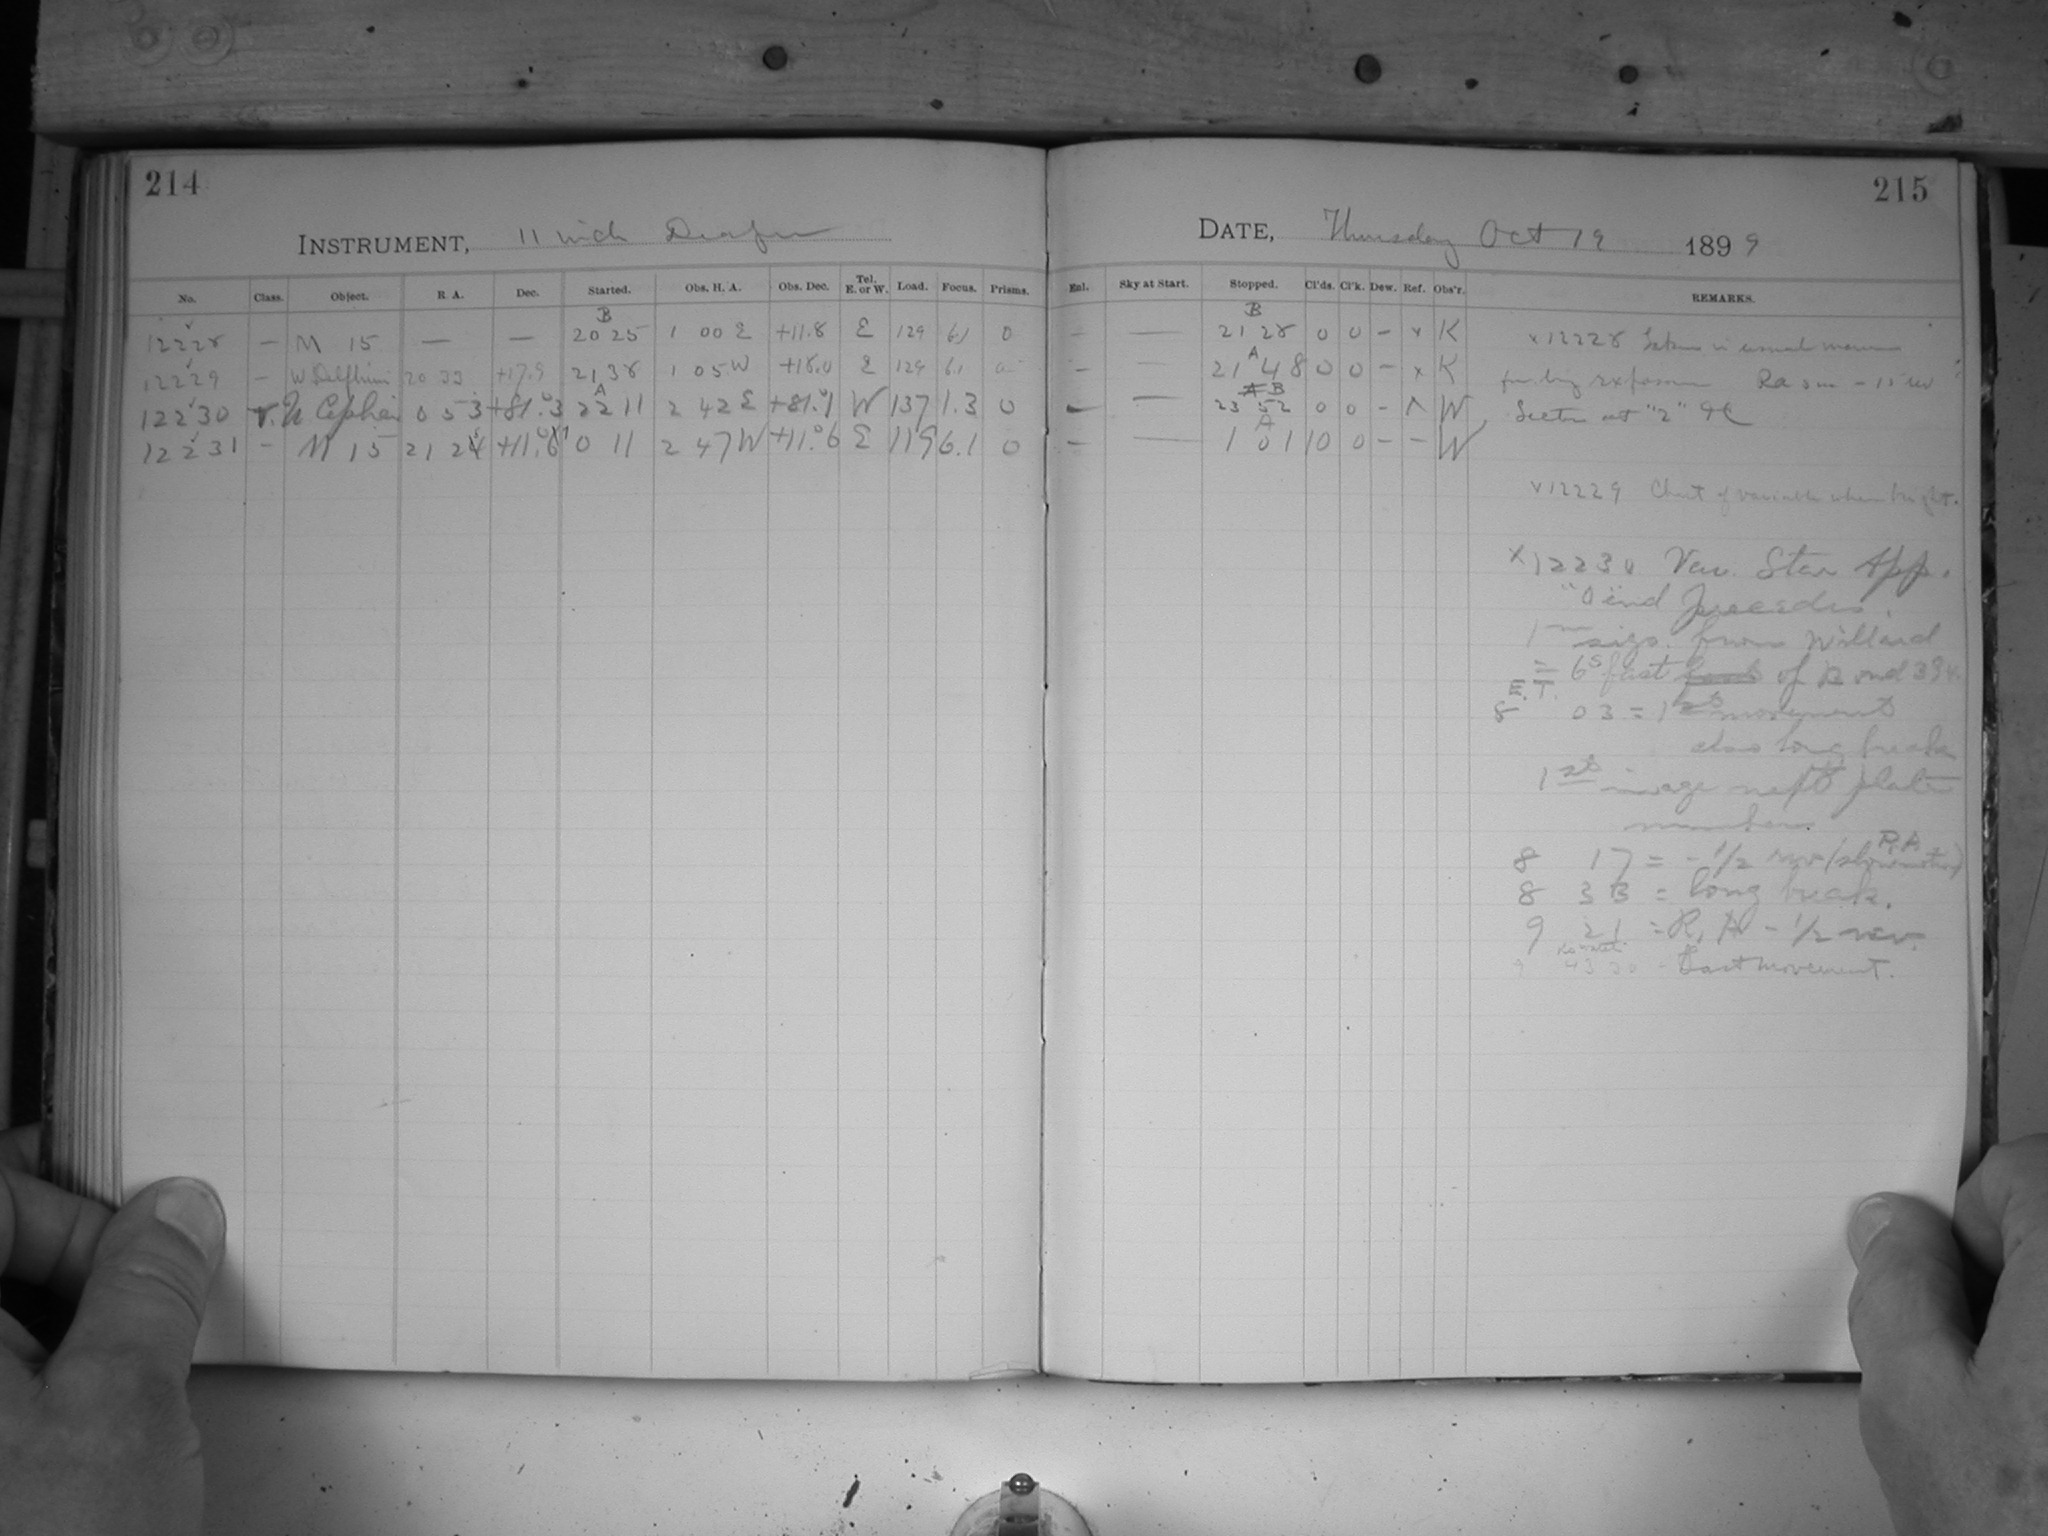 214
INSTRUMENT, 11 inch Draper
No. Class. Object. R. A. Dec. Started. Obs. H. A. Obs. Dec. Tel. E. or W. Load. Focus. Prisms.
B
12228 — M 15 — — 20 25 1 00 E +11.8 E 129 6.1 0
12229 — W Delphini 20 33 +17.9 21 38 1 05 W +18.0 E 129 6.1 0
A
12230 v. U Cephei 0 53 +81.3 22 11 2 42 E +81.1 W 137 1.3 0
12231 — M 15 21 24 +11.6 0 11 2 47 W +11.6 E 119 6.1 0
215
DATE, Thursday Oct 19 1899
Enl. Sky at Start. Stopped. Cl'ds. Cl'k. Dew. Ref. Obs'r. REMARKS.
B
— — 21 28 0 0 – x K x 12228 Taken in usual manner
A
— — 21 48 0 0 – x K
B
— — 23 52 0 0 – W at "2"
A
— — 1 01 10 0 – – W
v 12229 Chart of variable when bright.
x 12230 Var. Star App.
"0" end precedes.
1 m sigs. from Willard
= 6s fast of Bond 394
E. T.
8 03 = 1st movement
also long break
1st image next plate
number.
8 17 = - 1/2 rev (slow motion) R. A.
8 33 = long break.
9 21 = R. A - 1/2 rev.
Last movement.